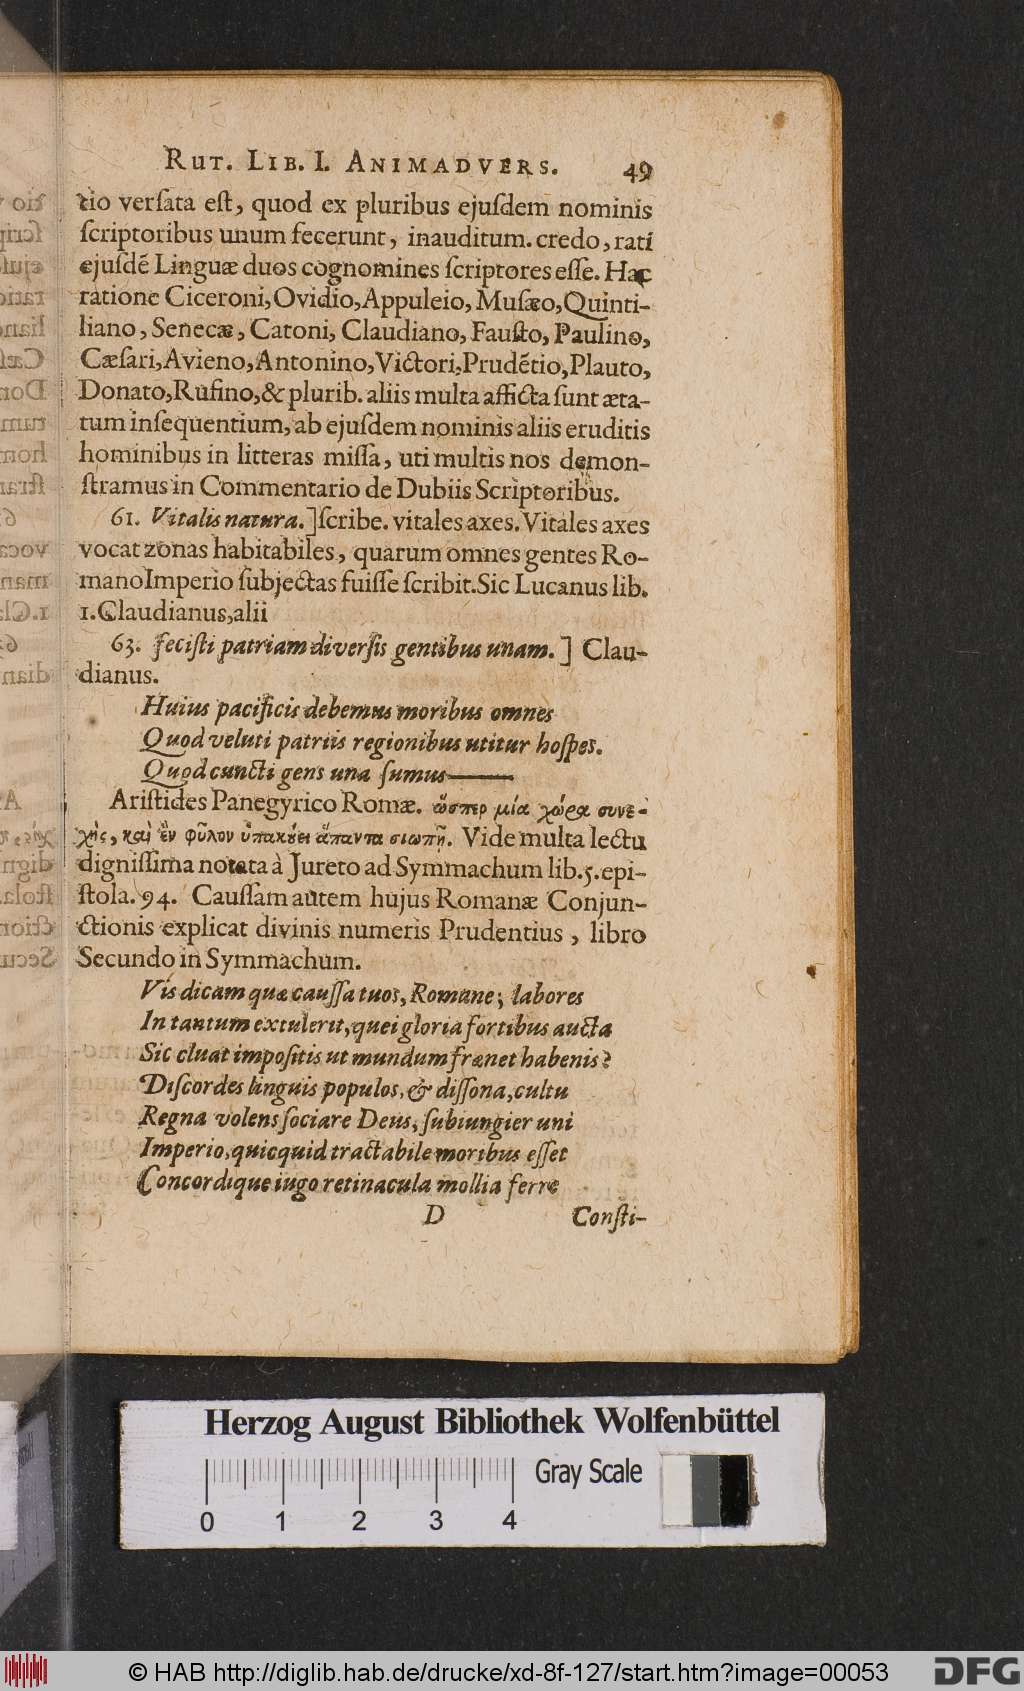 RUT. LIB. I. ANIMADVERS. 49
tio verſata eſt, quod ex pluribus ejuſdem nominis
ſcriptoribus unum fecerunt, inauditum. credo, rati
ejuſdē Linguæ duos cognomines ſcriptores eſſe. Hac
ratione Ciceroni, Ovidio, Appuleio, Muſæo, Quinti-
liano, Senecæ, Catoni, Claudiano, Fauſto, Paulino,
Cæſari, Avieno, Antonino, Victori, Prudētio, Plauto,
Donato, Rufino, & plurib. aliis multa afficta ſunt æta-
tum inſequentium, ab ejuſdem nominis aliis eruditis
hominibus in litteras miſſa, uti multis nos demon-
ſtramus in Commentario de Dubiis Scriptoribus.
61. Vitalis natura.] ſcribe. vitales axes. Vitales axes
vocat zonas habitabiles, quarum omnes gentes Ro-
mano Imperio ſubjectas fuiſſe ſcribit. Sic Lucanus lib.
1. Claudianus, alii
63. feciſti patriam diverſis gentibus unam.] Clau-
dianus.
Huius pacificis debemus moribus omnes
Quod veluti patriis regionibus utitur hoſpes.
Quod cuncti gens una ſumus———
Ariſtides Panegyrico Romæ. ὥσπερ μία χώρα συνε-
χὴς, καὶ ἓν φῦλον ὑπακούει ἅπαντα σιωπῇ. Vide multa lectu
digniſſima notata à Jureto ad Symmachum lib. 5. epi-
ſtola. 94. Cauſſam autem hujus Romanæ Conjun-
ctionis explicat divinis numeris Prudentius, libro
Secundo in Symmachum.
Vis dicam quæ cauſſa tuos, Romane, labores
In tantum extulerit, quei gloria fortibus aucta
Sic cluat impoſitis ut mundum frænet habenis?
Diſcordes linguis populos, & diſſona, cultu
Regna volens ſociare Deus, ſubiungier uni
Imperio, quicquid tractabile moribus eſſet
Concordique iugo retinacula mollia ferre
D Conſti-
Herzog August Bibliothek Wolfenbüttel
Gray Scale
0 1 2 3 4
© HAB http://diglib.hab.de/drucke/xd-8f-127/start.htm?image=00053
DFG